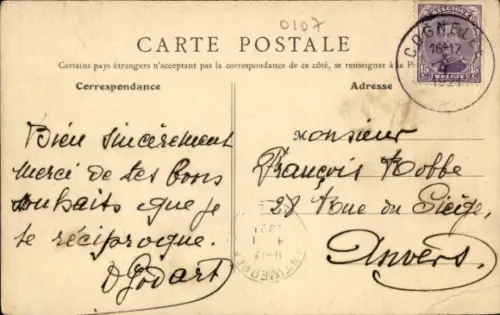 0107
CARTE POSTALE
Certains pays étrangers n'acceptant pas la correspondance de ce côté, se renseigner à la
Correspondance
Adresse
Bien sincèrement
merci de tes bons
souhaits que je
te réciproque.
D Godart
Monsieur
François Robbe
28 Rue du Siège,
Anvers.
COGNEL
16-17
1921
BELGIQUE
15
BELGIË
ANTWERPEN
1921
4 I
11-12